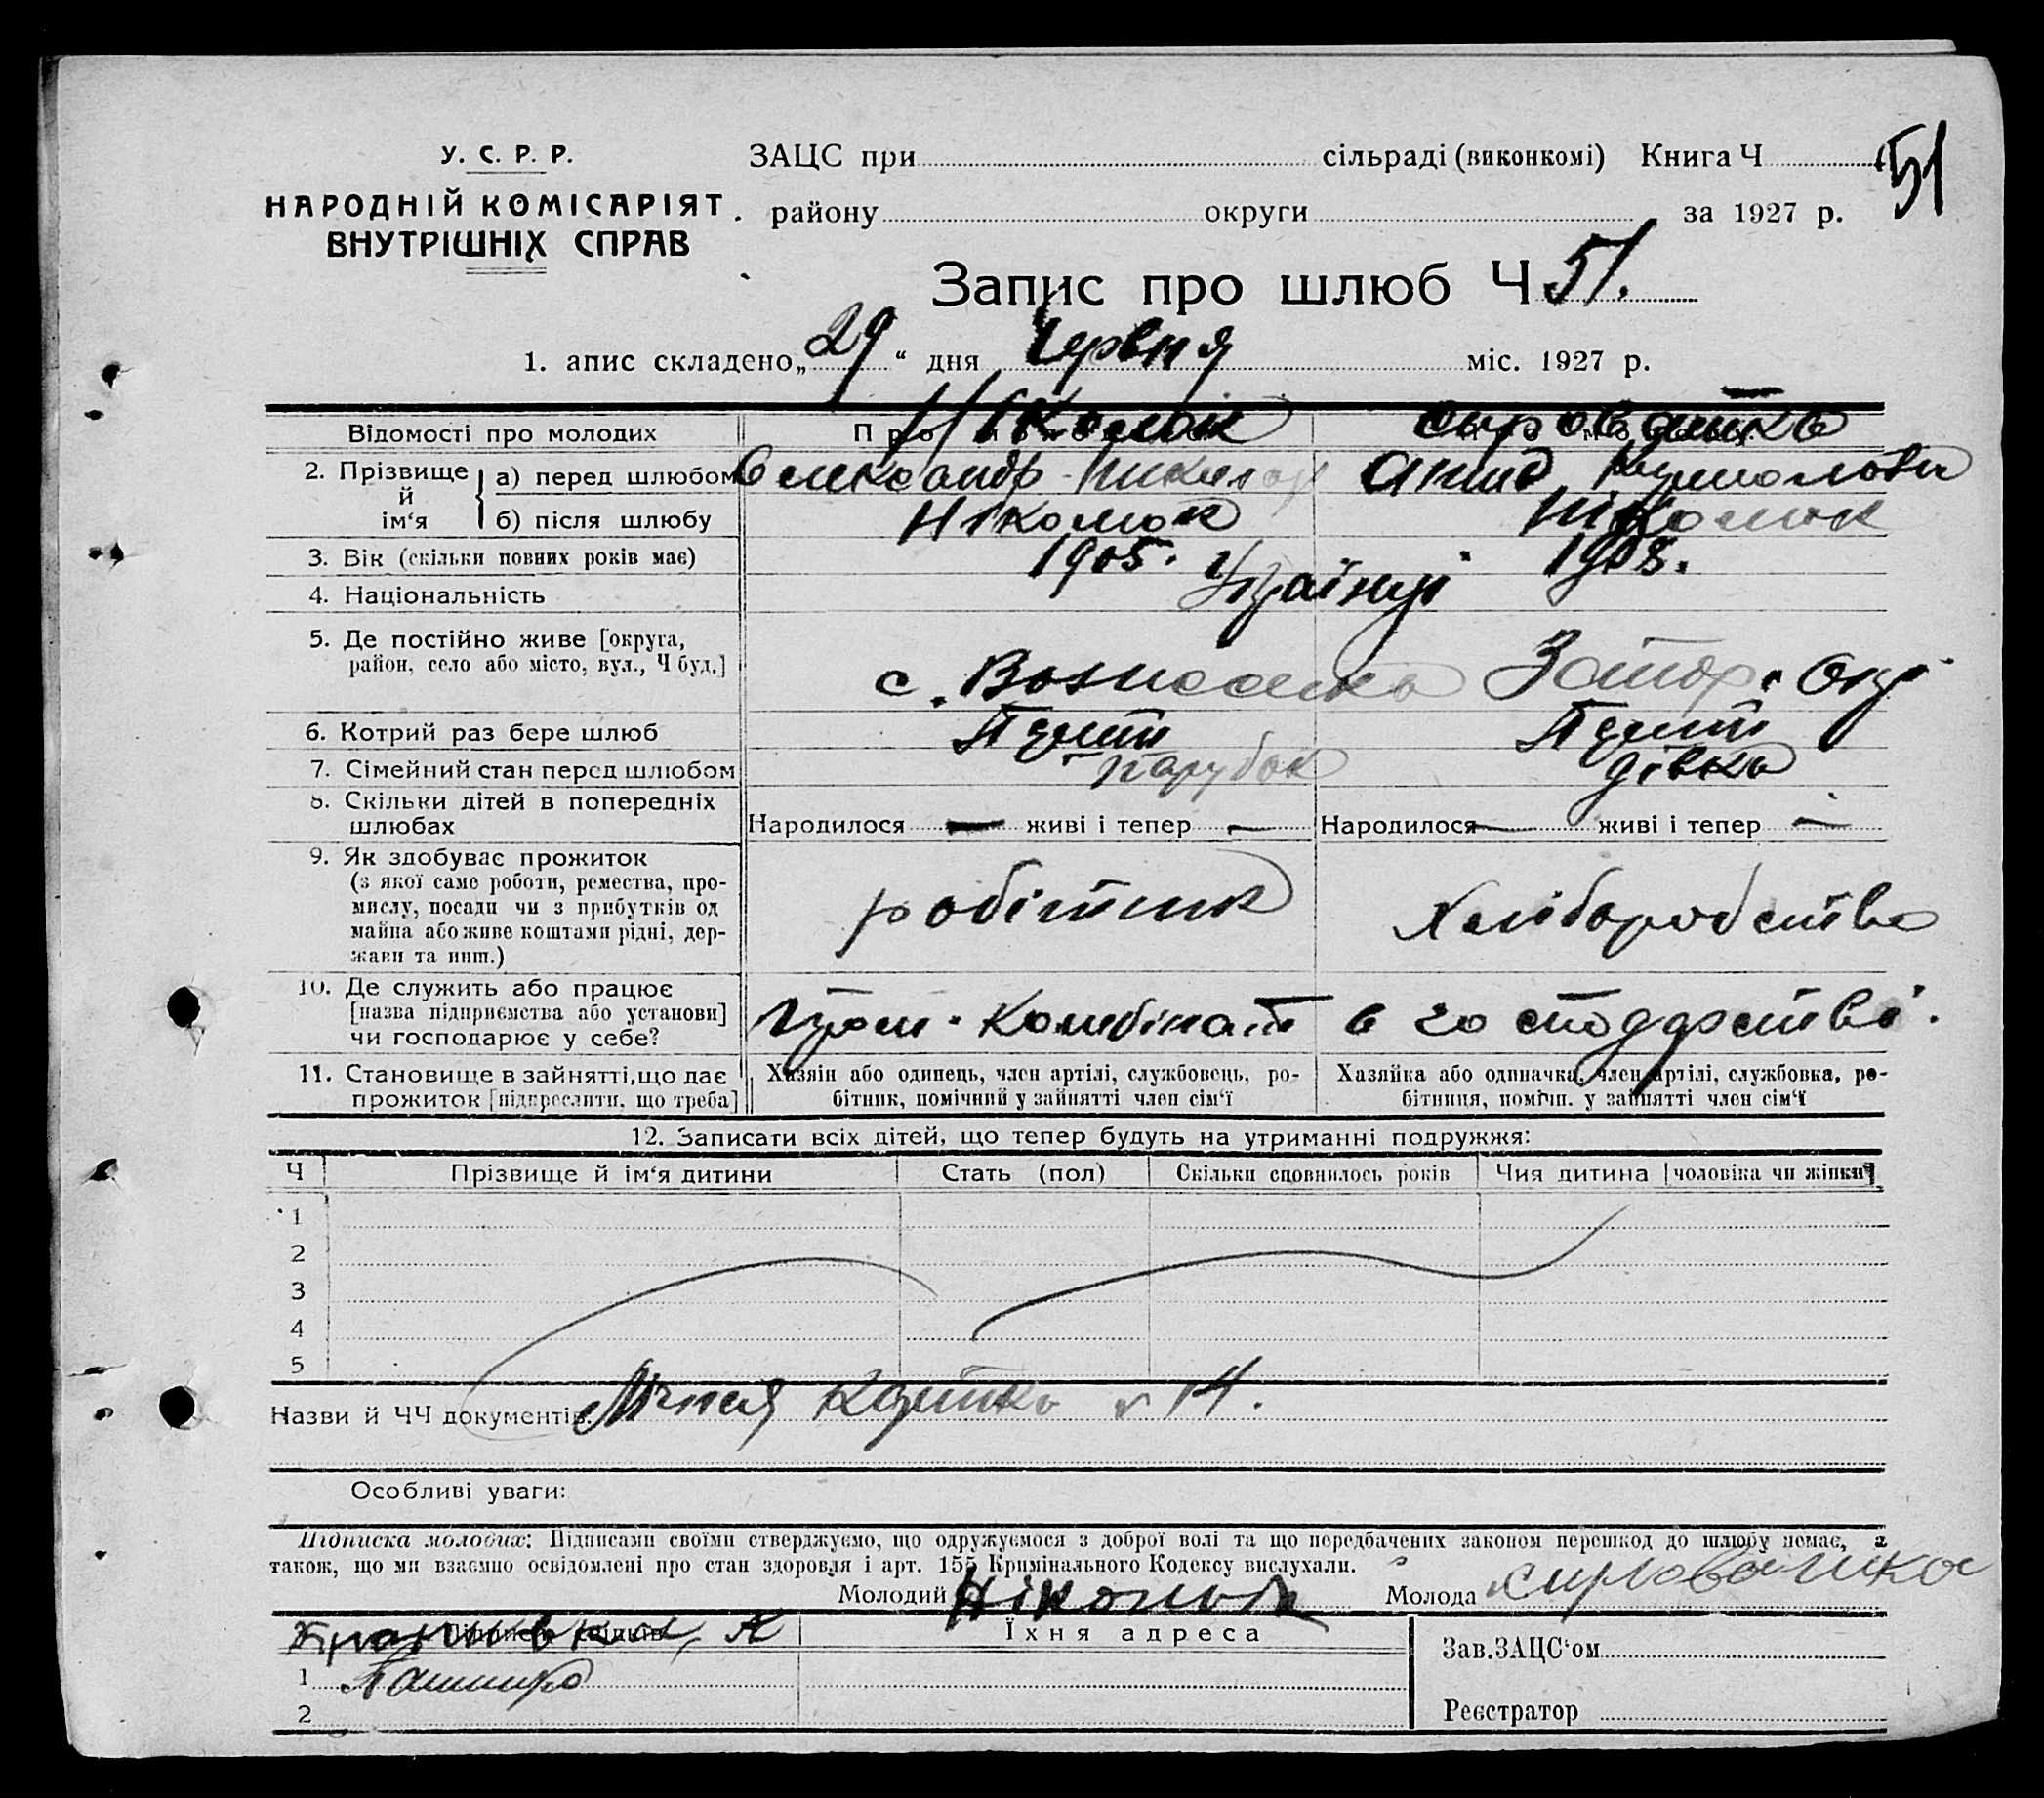 У. С. Р. Р.
НАРОДНІЙ КОМІСАРІЯТ
ВНУТРІШНІХ СПРАВ
ЗАЦС при сільраді (виконкомі) Книга Ч 51
району округи за 1927 р.
Запис про шлюб Ч 51.
1. апис складено „29“ дня Червня міс. 1927 р.
Відомості про молодих
2. Прізвище й ім‘я
а) перед шлюбом Ніколюк Олександр
б) після шлюбу Ніколюк Ніколюк
3. Вік (скільки повних років має) 1905. 1908.
4. Національність Українці
5. Де постійно живе [округа,
район, село або місто, вул., Ч буд.]
с. Вознесенка
6. Котрий раз бере шлюб
7. Сімейний стан перед шлюбом парубок дівка
8. Скільки дітей в попередніх
шлюбах
Народилося — живі і тепер — Народилося — живі і тепер —
9. Як здобуває прожиток
(з якої саме роботи, ремества, про-
мислу, посади чи з прибутків од
майна або живе коштами рідні, дер-
жави та инш.)
робітник Хліборобство
10. Де служить або працює
[назва підприємства або установи]
чи господарює у себе?
Комбінат в господарстві.
11. Становище в зайнятті, що дає
прожиток [підкреслити, що треба]
Хазяїн або одинець, член артілі, службовець, ро-
бітник, помічний у зайнятті член сім‘ї
Хазяйка або одиначка, член артілі, службовка, ро-
бітниця, помічн. у зайнятті член сім‘ї
12. Записати всіх дітей, що тепер будуть на утриманні подружжя:
Ч Прізвище й ім‘я дитини Стать (пол) Скільки сповнилось років Чия дитина [чоловіка чи жінки]
1
2
3
4
5
Назви й ЧЧ документів: 14.
Особливі уваги:
Підписка молодих: Підписами своїми стверджуємо, що одружуємося з доброї волі та що передбачених законом перешкод до шлюбу немає, а
також, що ми взаємно освідомлені про стан здоровля і арт. 155 Кримінального Кодексу вислухали.
Молодий Ніколюк Молода
Їхня адреса
1
2
Зав.ЗАЦС‘ом
Реєстратор